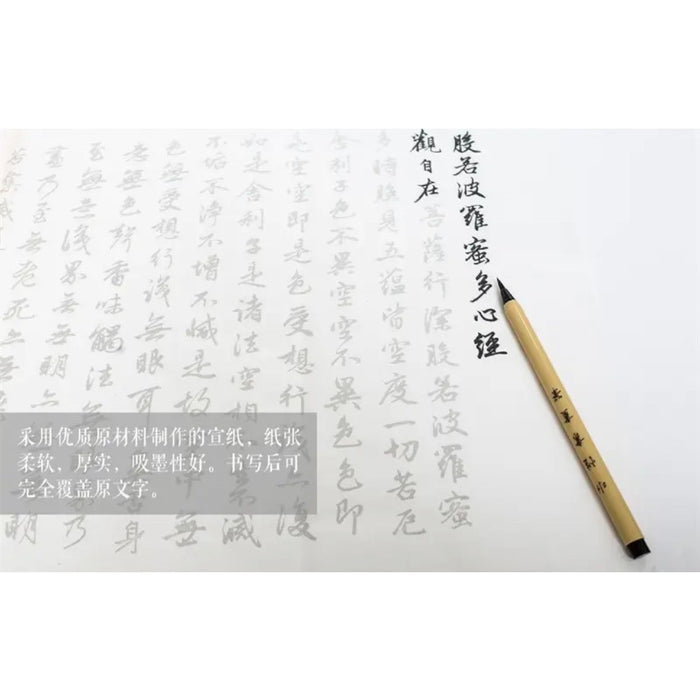 般若波羅蜜多心經
觀自在菩薩行深般若波羅蜜
多時照見五蘊皆空度一切苦厄
舍利子色不異空空不異色色即
是空空即是色受想行識亦復
如是舍利子是諸法空相滅
不垢不淨不增不減是故空中無
色無受想行識無眼耳舌身
意無色聲香味觸法無乃
至無意識界無無明亦明
盡乃至無老死亦無
苦集滅
采用优质原材料制作的宣纸，纸张
柔软，厚实，吸墨性好。书写后可
完全覆盖原文字。